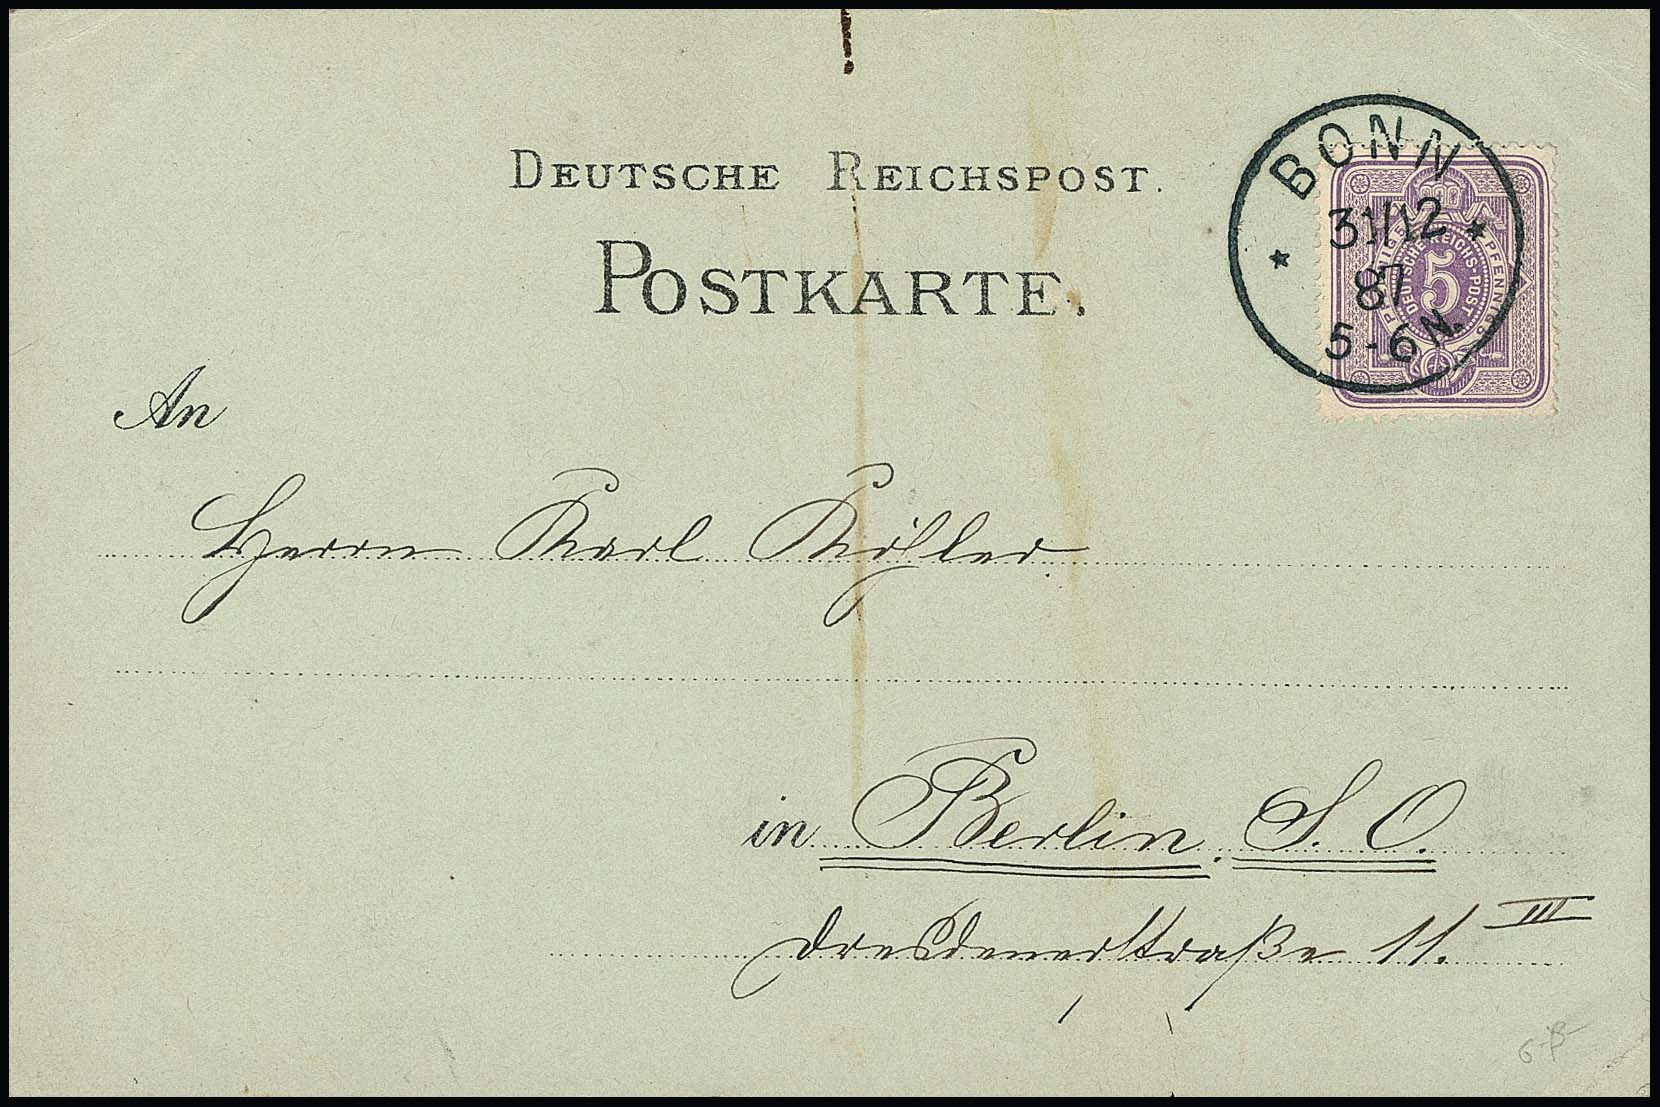 DEUTSCHE REICHSPOST.
POSTKARTE.
BONN
31/12
87
5-6N.
PFENNIG PFENNIG
DEUTSCHE REICHS-POST
5
An
Herrn Karl Köhler
in Berlin. S. O.
Dresdenerstraße 11. III